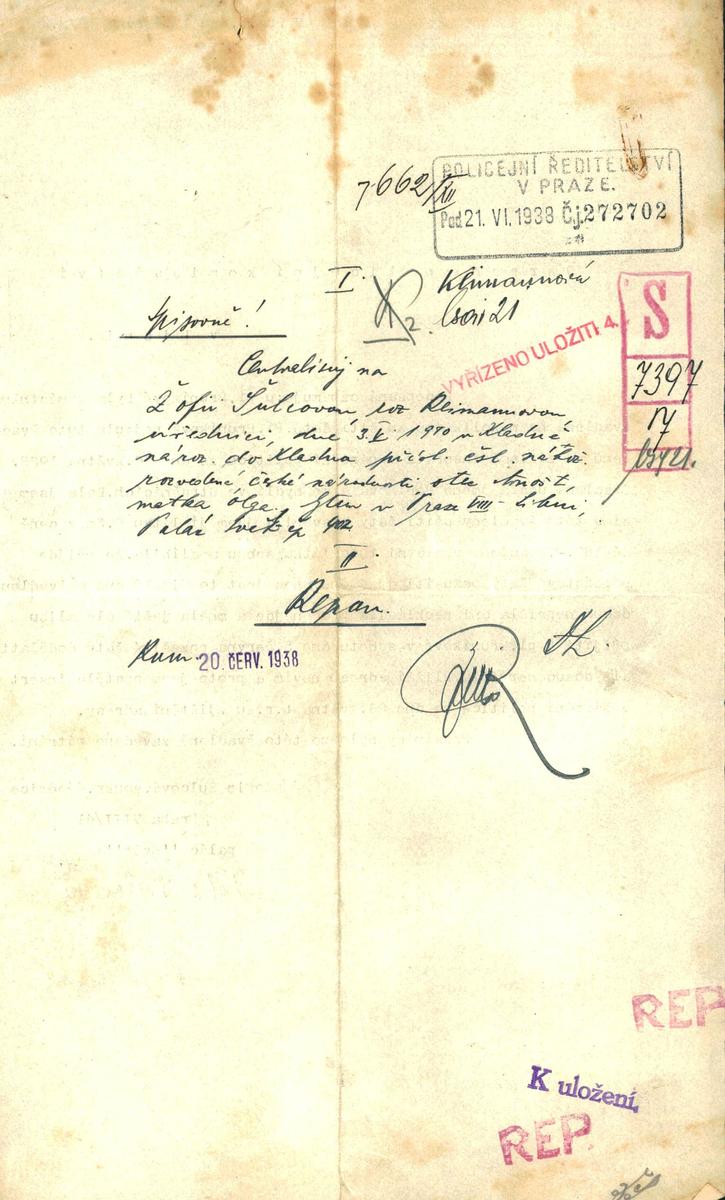 7662/XII
POLICEJNÍ ŘEDITELSTVÍ
V PRAZE.
Pod 21. VI. 1938 Čj. 272702
I.
Klimannová
21
Spisovně!
VYŘÍZENO ULOŽITI 4.
S
7397
17
Centralisuj na
Žofii Šulcovou, roz. Klimannovou
úřednici, dne 3.V. 1910 v Kladně
naroz. do Kladna přísl. čsl. nábož.
rozvedené, české národnosti otec Arnošt,
matka Olga. Bytem v Praze VIII - Libni,
Palác Svět čp
II
Repon.
20. ČERV. 1938
REP
K uložení.
REP.